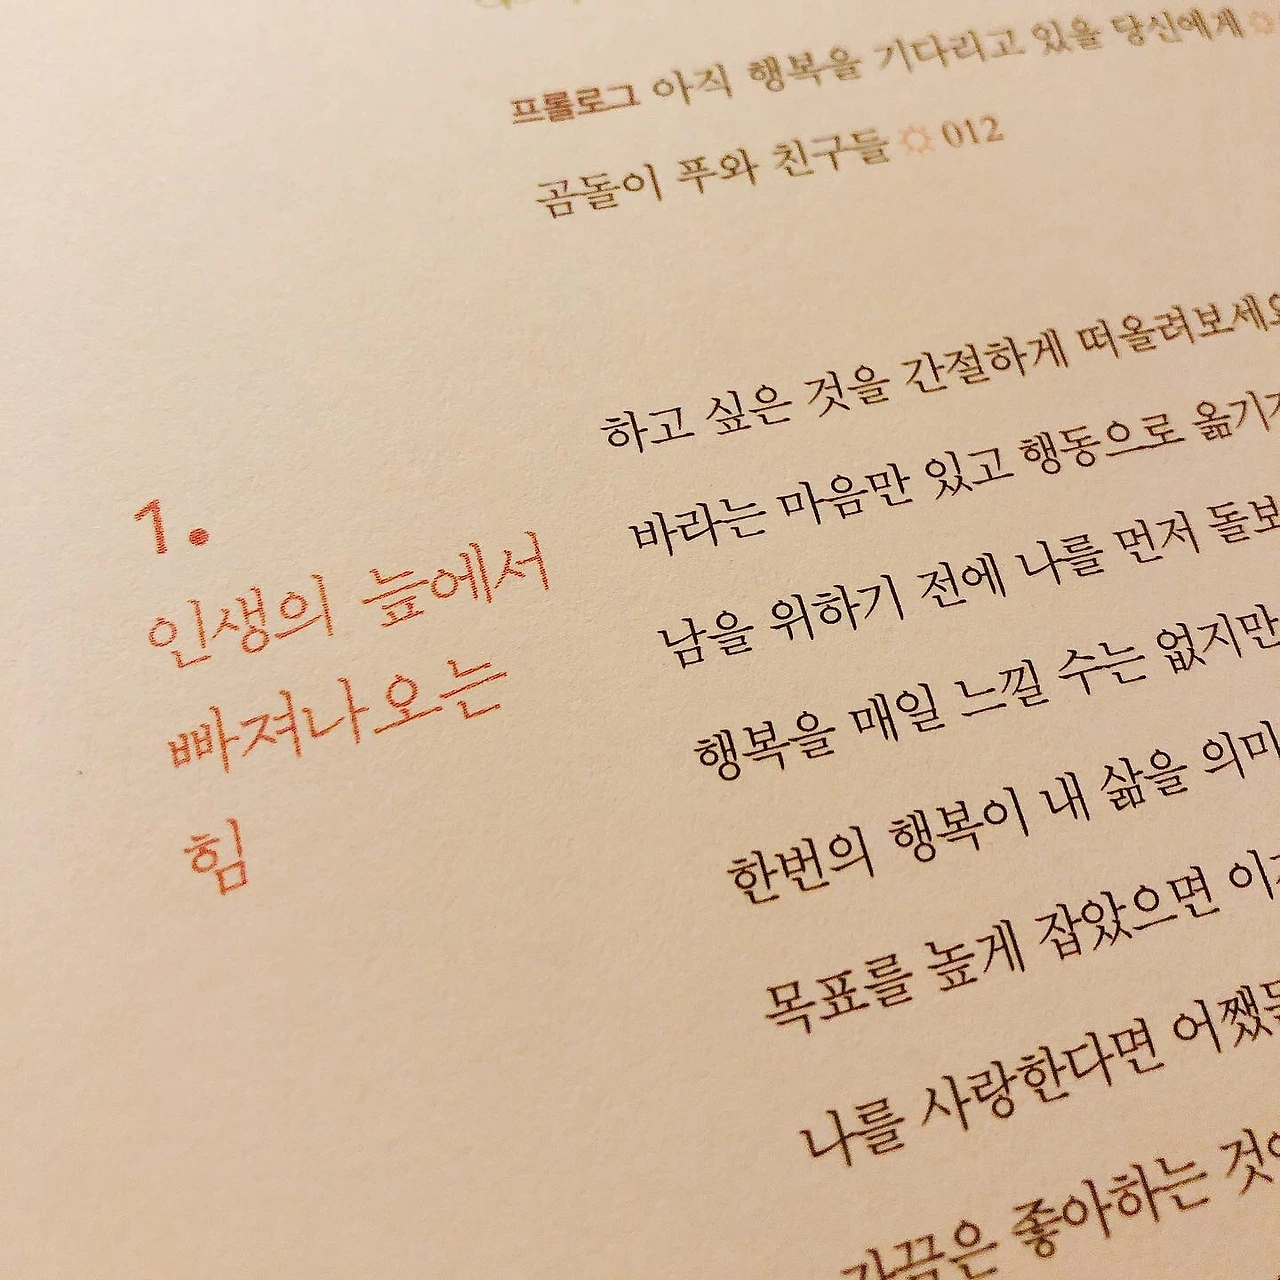 프롤로그 아직 행복을 기다리고 있을 당신에게
곰돌이 푸와 친구들 012
1.
인생의 늪에서
빠져나오는
힘
하고 싶은 것을 간절하게 떠올려보세요
바라는 마음만 있고 행동으로 옮기지
남을 위하기 전에 나를 먼저 돌보
행복을 매일 느낄 수는 없지만
한번의 행복이 내 삶을 의미
목표를 높게 잡았으면
나를 사랑한다면
가끔은 좋아하는